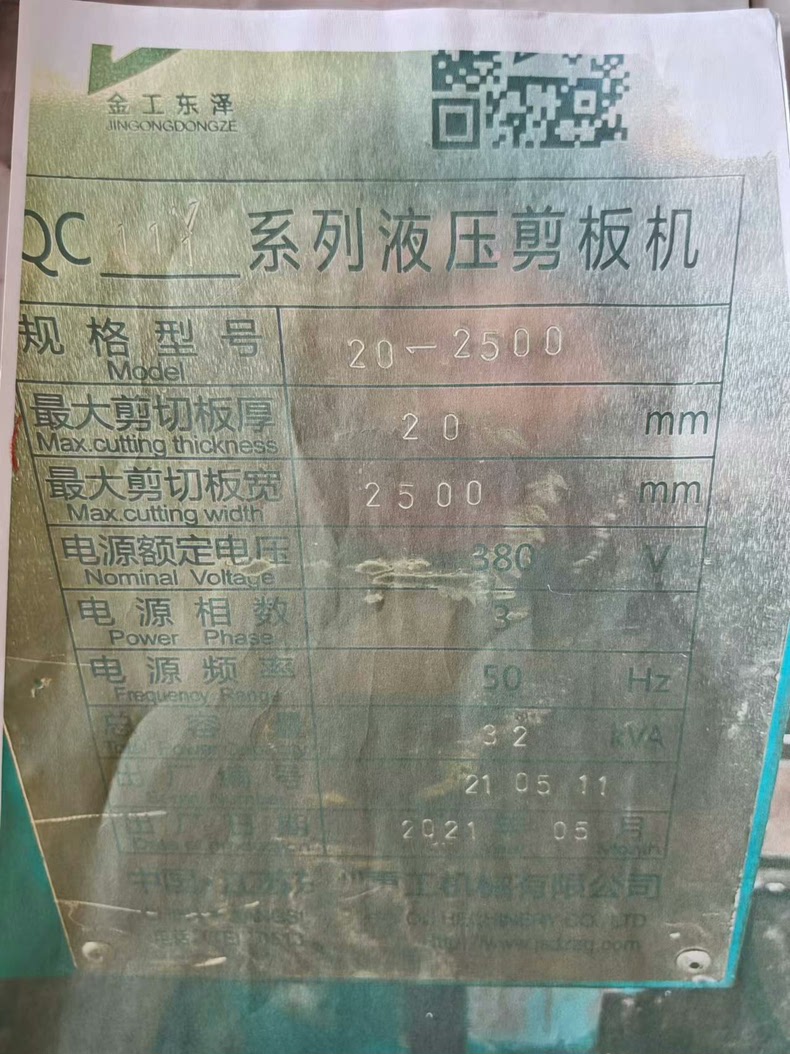 金工东泽
JINGONGDONGZE
QC 11Y 系列液压剪板机
规格型号 20-2500
Model
最大剪切板厚 20 mm
Max.cutting thickness
最大剪切板宽 2500 mm
Max.cutting width
电源额定电压 380 V
Nominal Voltage
电源相数 3
Power Phase
电源频率 50 Hz
Frequency Range
总容量 32 kVA
出厂编号 21 05 11
出厂日期 2021 05 月
Month
重工机械有限公司
CO. LTD